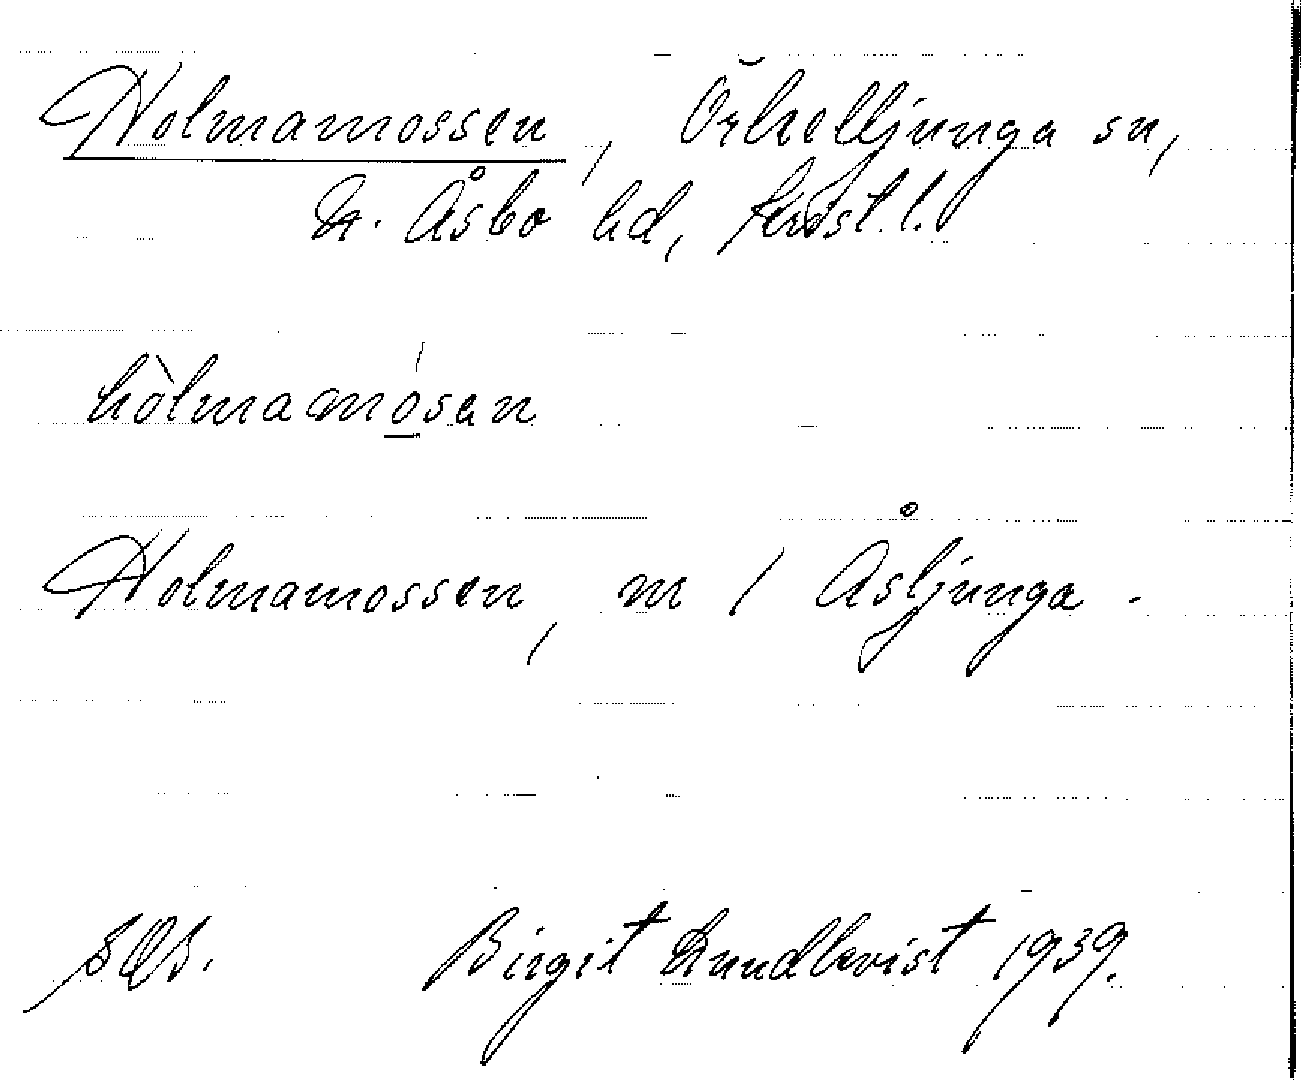 Holmamossen, Örkelljunga sn,
N. Åsbo hd, Krist. l.
hòlmamósan
Holmamossen, m / Åsljunga.
Birgit Lundkvist 1939.